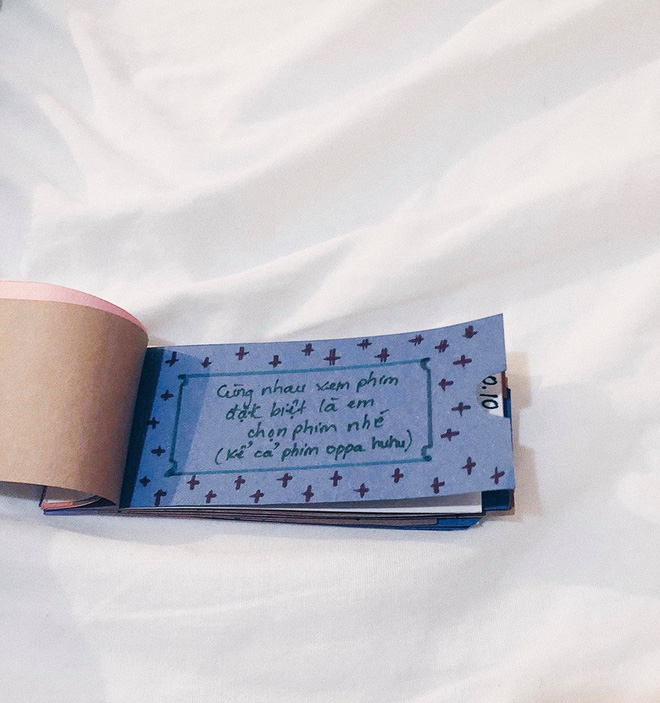 Cùng nhau xem phim
đặc biệt là em
chọn phim nhé
(kể cả phim oppa huhu)
0.10